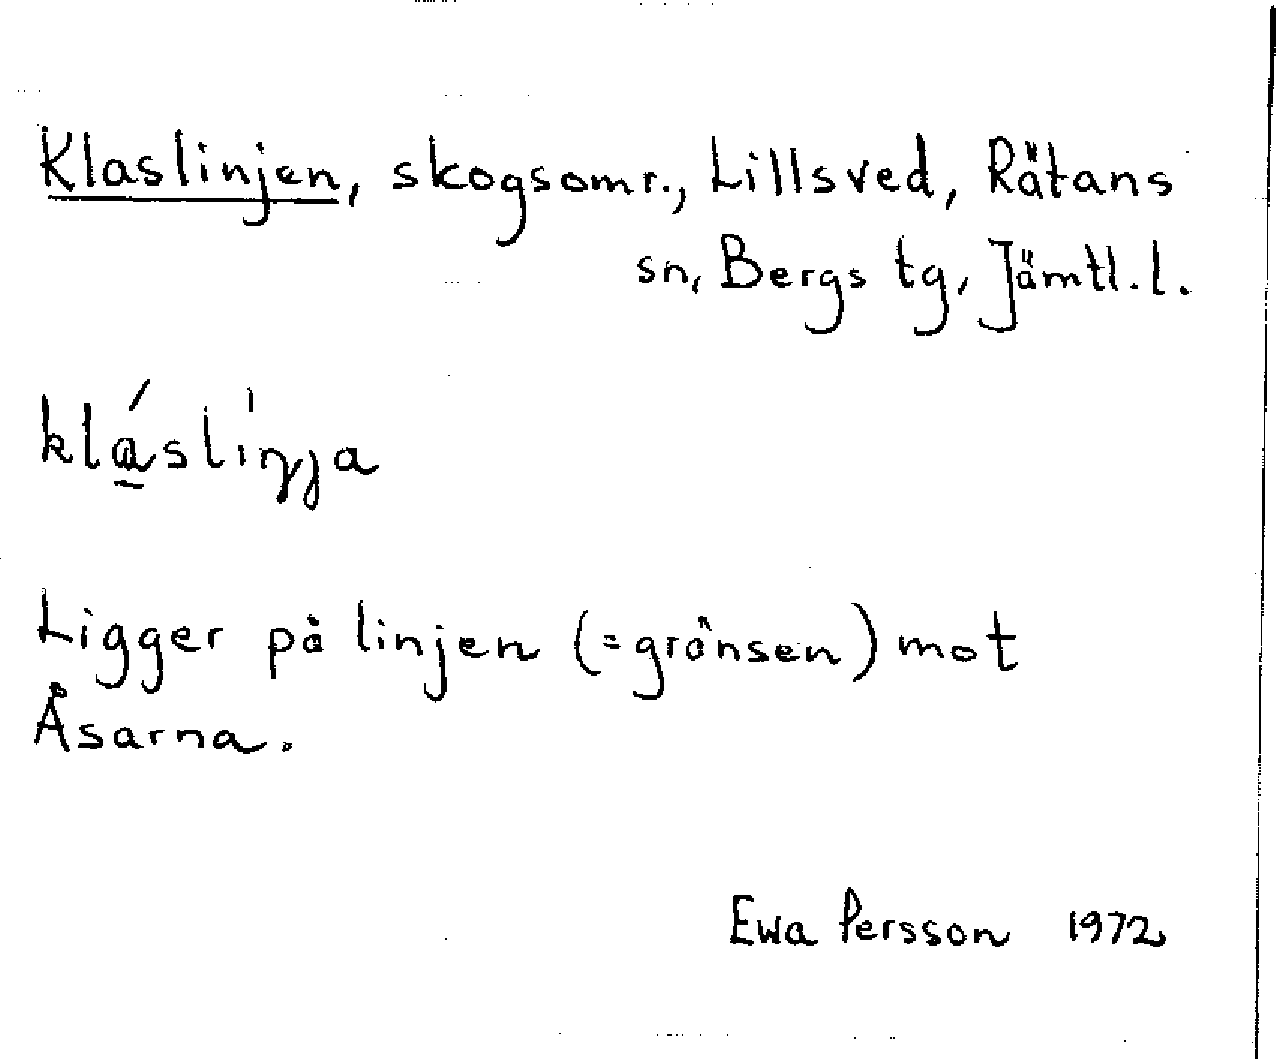 Klaslinjen, skogsomr., Lillsved, Rätans
sn, Bergs tg, Jämtl.l.
klá̱sliŋja
Ligger på linjen (=gränsen) mot
Åsarna.
Ewa Persson 1972